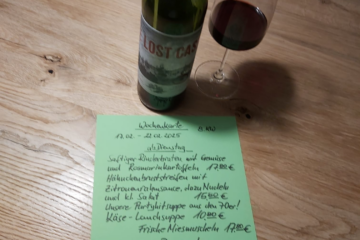 LOST CAS
Wochenkarte
17.02. - 22.02.2025
ab Dienstag
Saftiger Rinderbraten mit Gemüse
und Rosmarinkartoffeln 17,80 €
Hähnchenbruststreifen mit
Zitronenrahmsauce, dazu Nudeln
und kl. Salat 15,80 €
Unsere Partyhitsuppe aus den 70er!
Käse-Lauchsuppe 10,80 €
Frische Miesmuscheln 17,80 €